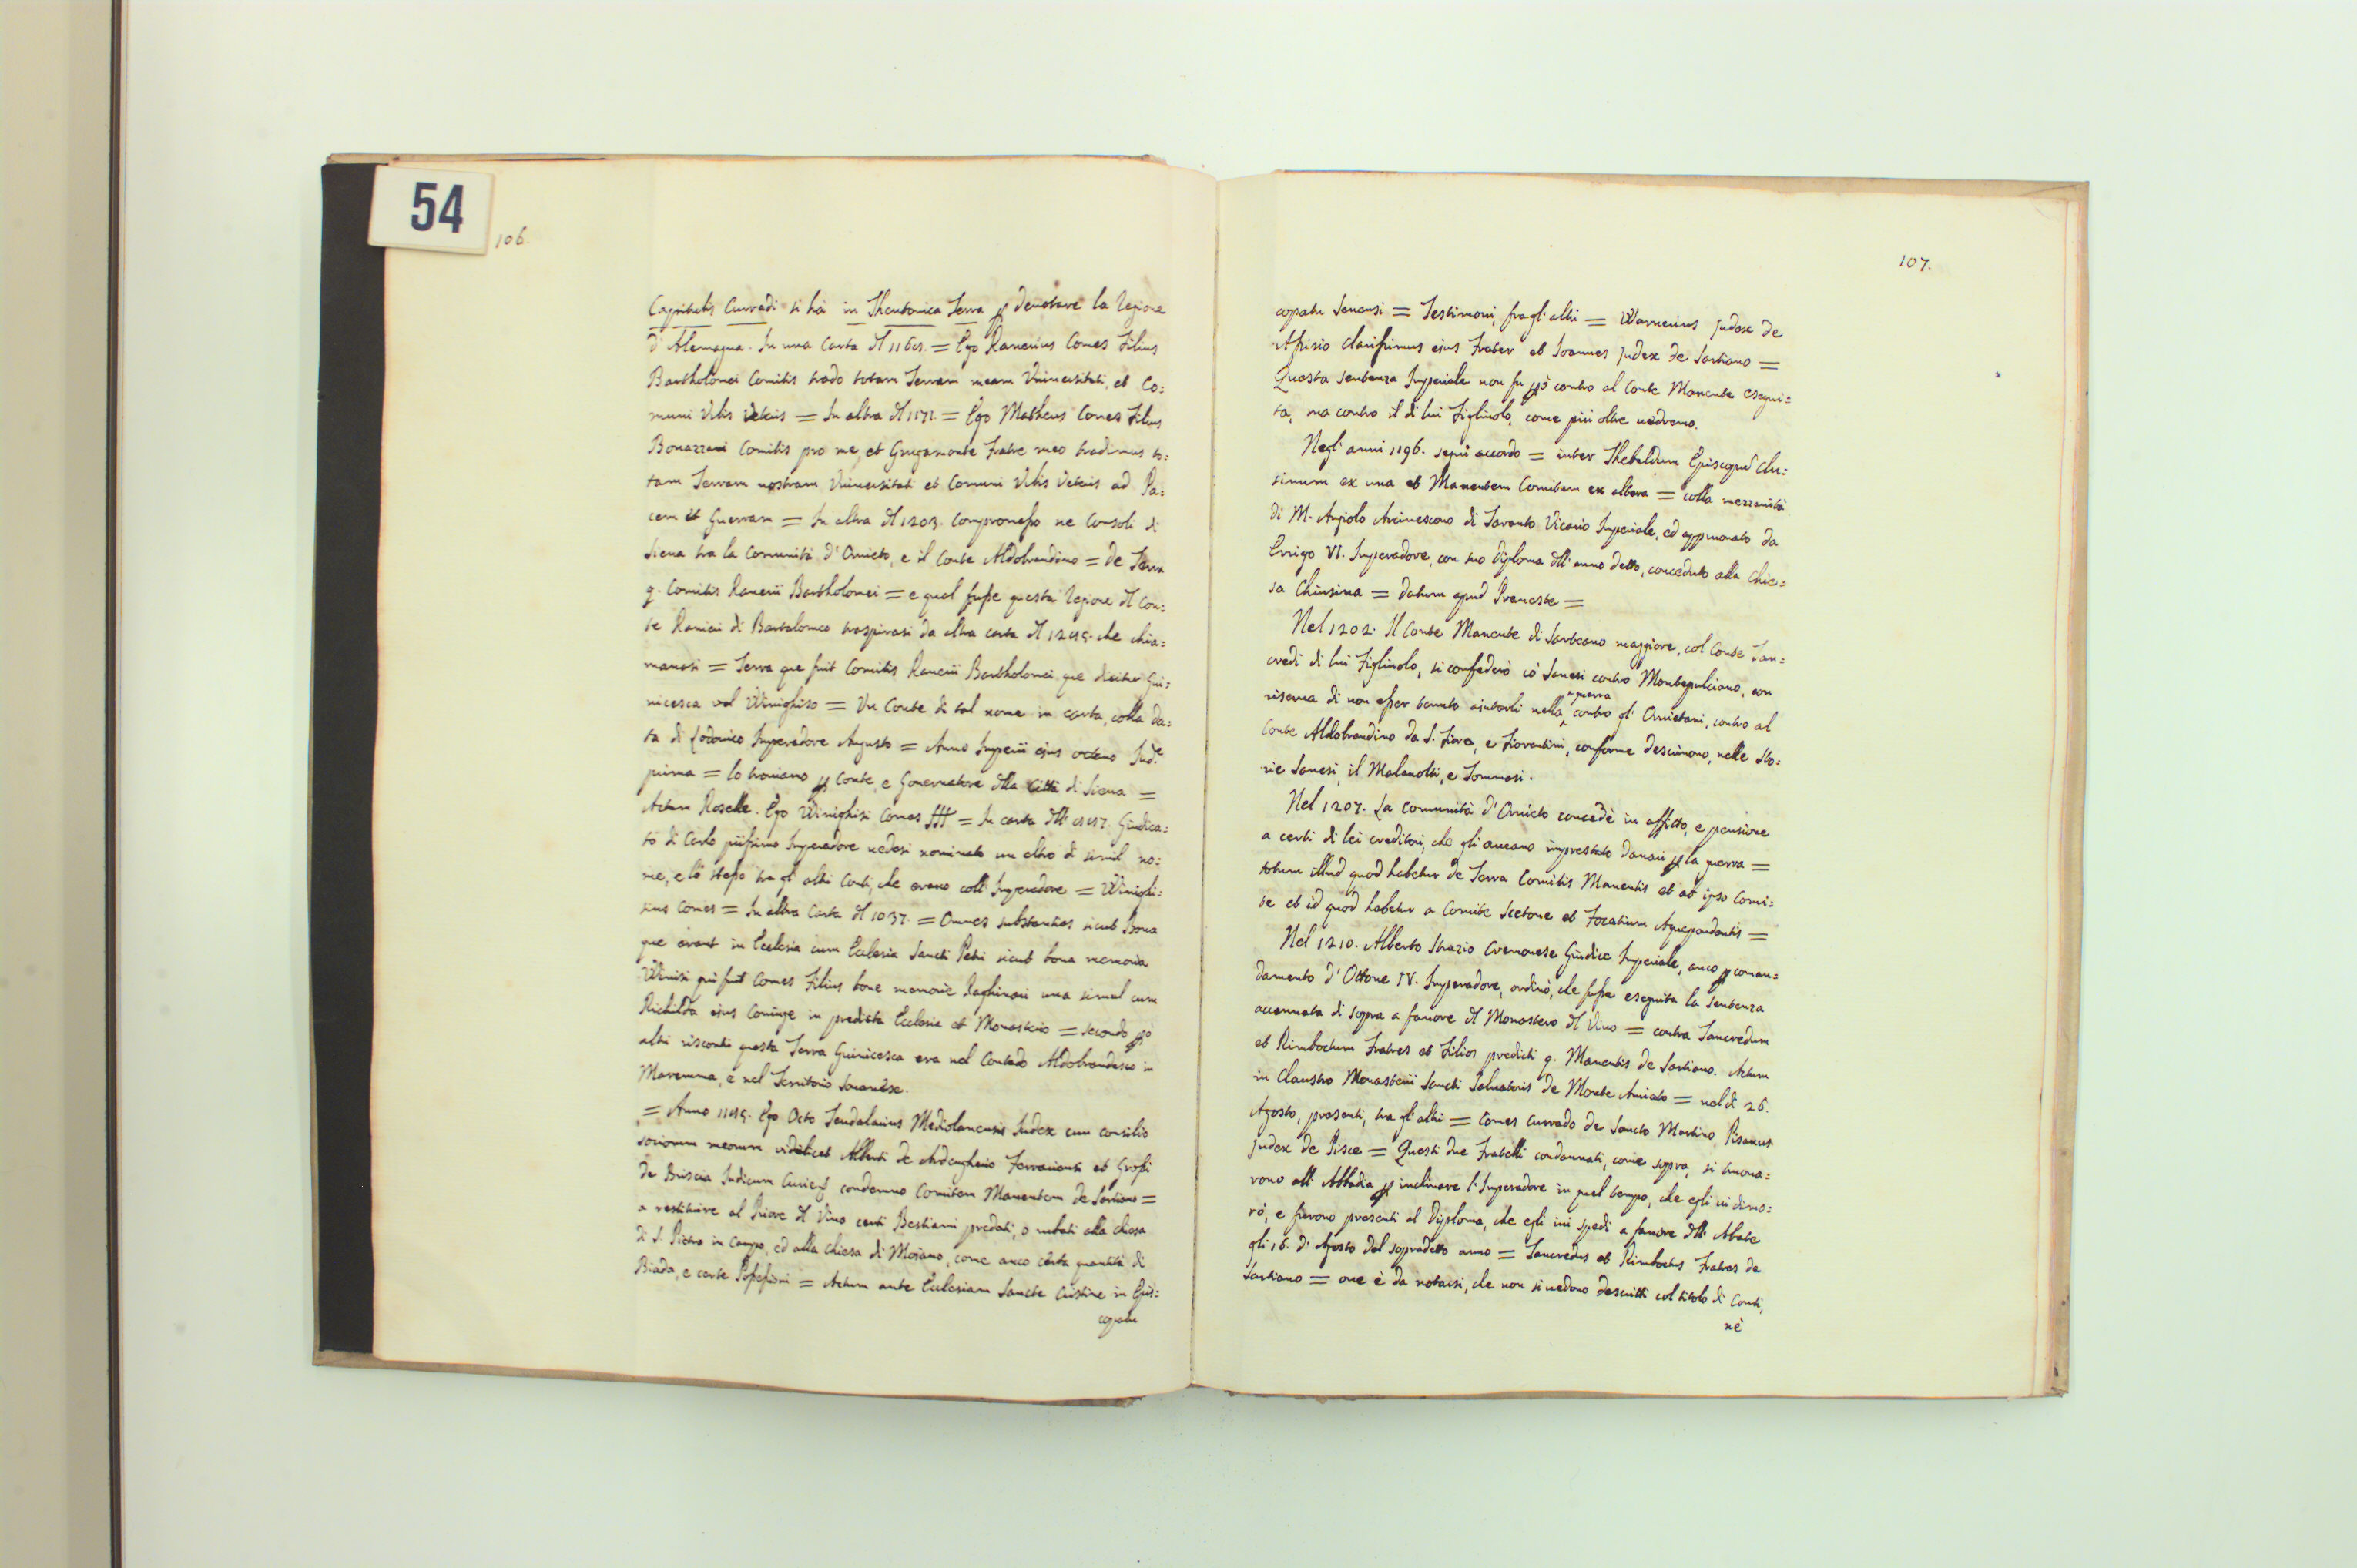 54
106.
Capitulis Curradi si hà in Theutonica Terra p denotare la Regione
d'Alemagna. In una Carta del 1168. = Ego Ranerius Comes Filius
Bartholomei Comitis trado totam Terram meam Universitati, et Co=
muni Urbis Veteris = In altra del 1171. = Ego Matheus Comes Filius
Bonazzani Comitis pro me, et Grugamonte Fratre meo tradimus to=
tam Terram nostram Universitati et Comuni Urbis Veteris ad Pa=
cem et Guerram = In altra del 1203. Compromesso ne Consoli di
Siena tra la Comunità d'Orvieto, e il Conte Aldobrandino = de Terra
q. Comitis Ranerii Bartholomei = e qual fusse questa Regione del Con=
te Ranieri di Bartolomeo traspirasi da altra carta del che chia=
mavasi = Terra que fuit Comitis Ranerii Bartholomei que dicitur Gui=
nicesca vel Winighiso = Un Conte di tal nome in carta, colla da=
ta di Lodovico Imperadore Augusto = Anno Imperii ejus octavo Ind.e
prima = lo troviamo p Conte, e Governatore della Città di Siena =
Actum Roselle. Ego Winighisi Comes = In carta dell' Giudica=
to di Carlo piissimo Imperadore vedesi nominato un altro di simil no=
me, e lo stesso tra gl'altri Conti, che erano coll'Imperadore = Winighi=
sius Comes = In altra Carta del 1037. = Omnes substantias sicut Bona
que erant in Ecclesia cum Ecclesia Sancti Petri sicut bona memoria
Winisi qui fuit Comes Filius bone memorie Raghinari una simul cum
Richilda ejus Coniuge in predicta Ecclesia et Monasterio = secondo pò
altri riscontri questa Terra Guinicesca era nel Contado Aldobrandesco in
Maremma, e nel Territorio Soanese.
= Anno Ego Octo Tendalarius Mediolanensis Judex cum consilio
sociorum meorum videlicet Alberti de Ardengherio Ferrariensis et Grossi
de Briscia Judicum Curie condemno Comitem Manentem de Sartiano =
a restituire al Priore del Vivo certi Bestiami predati, o rubati alla chiesa
di S. Pietro in Campo, ed alla Chiesa di Mojano, come anco certa quantità di
Biada, e certe Possessioni = Actum ante Ecclesiam Sancte Cristine in Epis=
copatu
107.
copatu Senensi = Testimoni, fra gl'altri = Warnerius Judex de
Assisio clarissimus ejus Frater et Joannes Judex de Sartiano =
Questa sentenza Imperiale non fu pò contro al Conte Manente esegui=
ta, ma contro il di lui Figliuolo, come più oltre vedremo.
Negl'anni 1196. seguì accordo = inter Thebaldum Episcopum Clu=
sinum ex una et Manentem Comitem ex altera = colla mezzanità
di M. Angiolo Arcivescovo di Taranto Vicario Imperiale, ed approvato da
Errigo VI. Imperadore, con suo diploma dell'anno detto, conceduto alla Chie=
sa Chiusina = datum apud Preneste =
Nel 1202. Il Conte Manente di Sarteano maggiore, col Conte Tan=
credi di lui Figliuolo, si confederò cò Sanesi contro Montepulciano, con
riserva di non esser tenuto aiutarli nella guerra contro gl'Orvietani, contro al
Conte Aldobrandino da S. Fiora, e Fiorentini, conforme descrivono, nelle Sto=
rie Sanesi, il Malavolti, e Tommasi.
Nel 1207. La Comunità d'Orvieto concedè in affitto, e pensione
a certi di lei creditori, che gli aveano imprestato danari p la guerra =
totum illud quod habetur de Terra Comitis Manentis et ab ipso Comi=
te et id quod habetur a Comite Scetone et Focatium Aquependentis =
Nel 1210. Alberto Strazio Cremonese Giudice Imperiale, anco p coman=
damento d'Ottone IV. Imperadore, ordinò, che fusse eseguita la sentenza
accennata di sopra a favore del Monastero del Vivo = contra Tancredum
et Rimboctum Fratres et Filios predicti q. Manentis de Sartiano. Actum
in Claustro Monasterii Sancti Salvatoris de Monte Amiato = nel dì 26.
Agosto, presenti, tra gl'altri = Comes Currado de Sancto Martino, Pisanus
Judex de Pisce = Questi due Fratelli condannati, come sopra, si trova=
rono all'Abbadia p inclinare l'Imperadore in quel tempo, che egli vi dimo=
rò, e furono presenti al Diploma, che egli ivi spedì a favore dell'Abate
gli 16. d'Agosto del sopradetto anno = Tancredus et Rimboctus Fratres de
Sartiano = ove è da notarsi, che non si vedono descritti col titolo di Conti,
nè